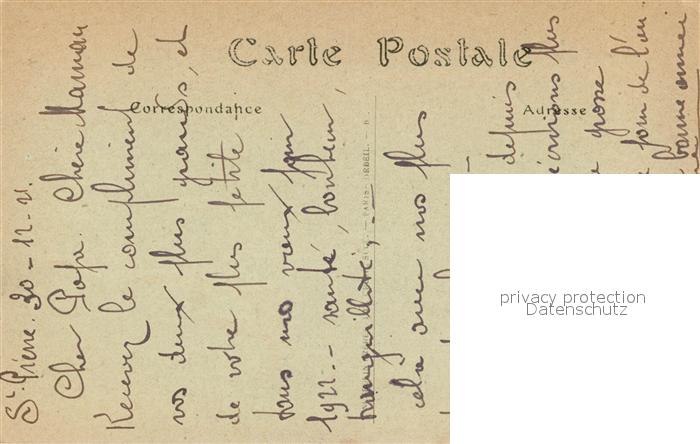 Carte Postale
Correspondance
Adresse
St Pierre. 30-12-21.
Cher Papa. Chère Maman
Recevez le compliment de
vos deux plus grands, et
de votre plus petite
tous nos vœux pour
1922. - santé, bonheur,
tranquillité, -
cela avec nos plus
depuis
plus
grosse
jour de l'an.
bonne année
privacy protection
Datenschutz